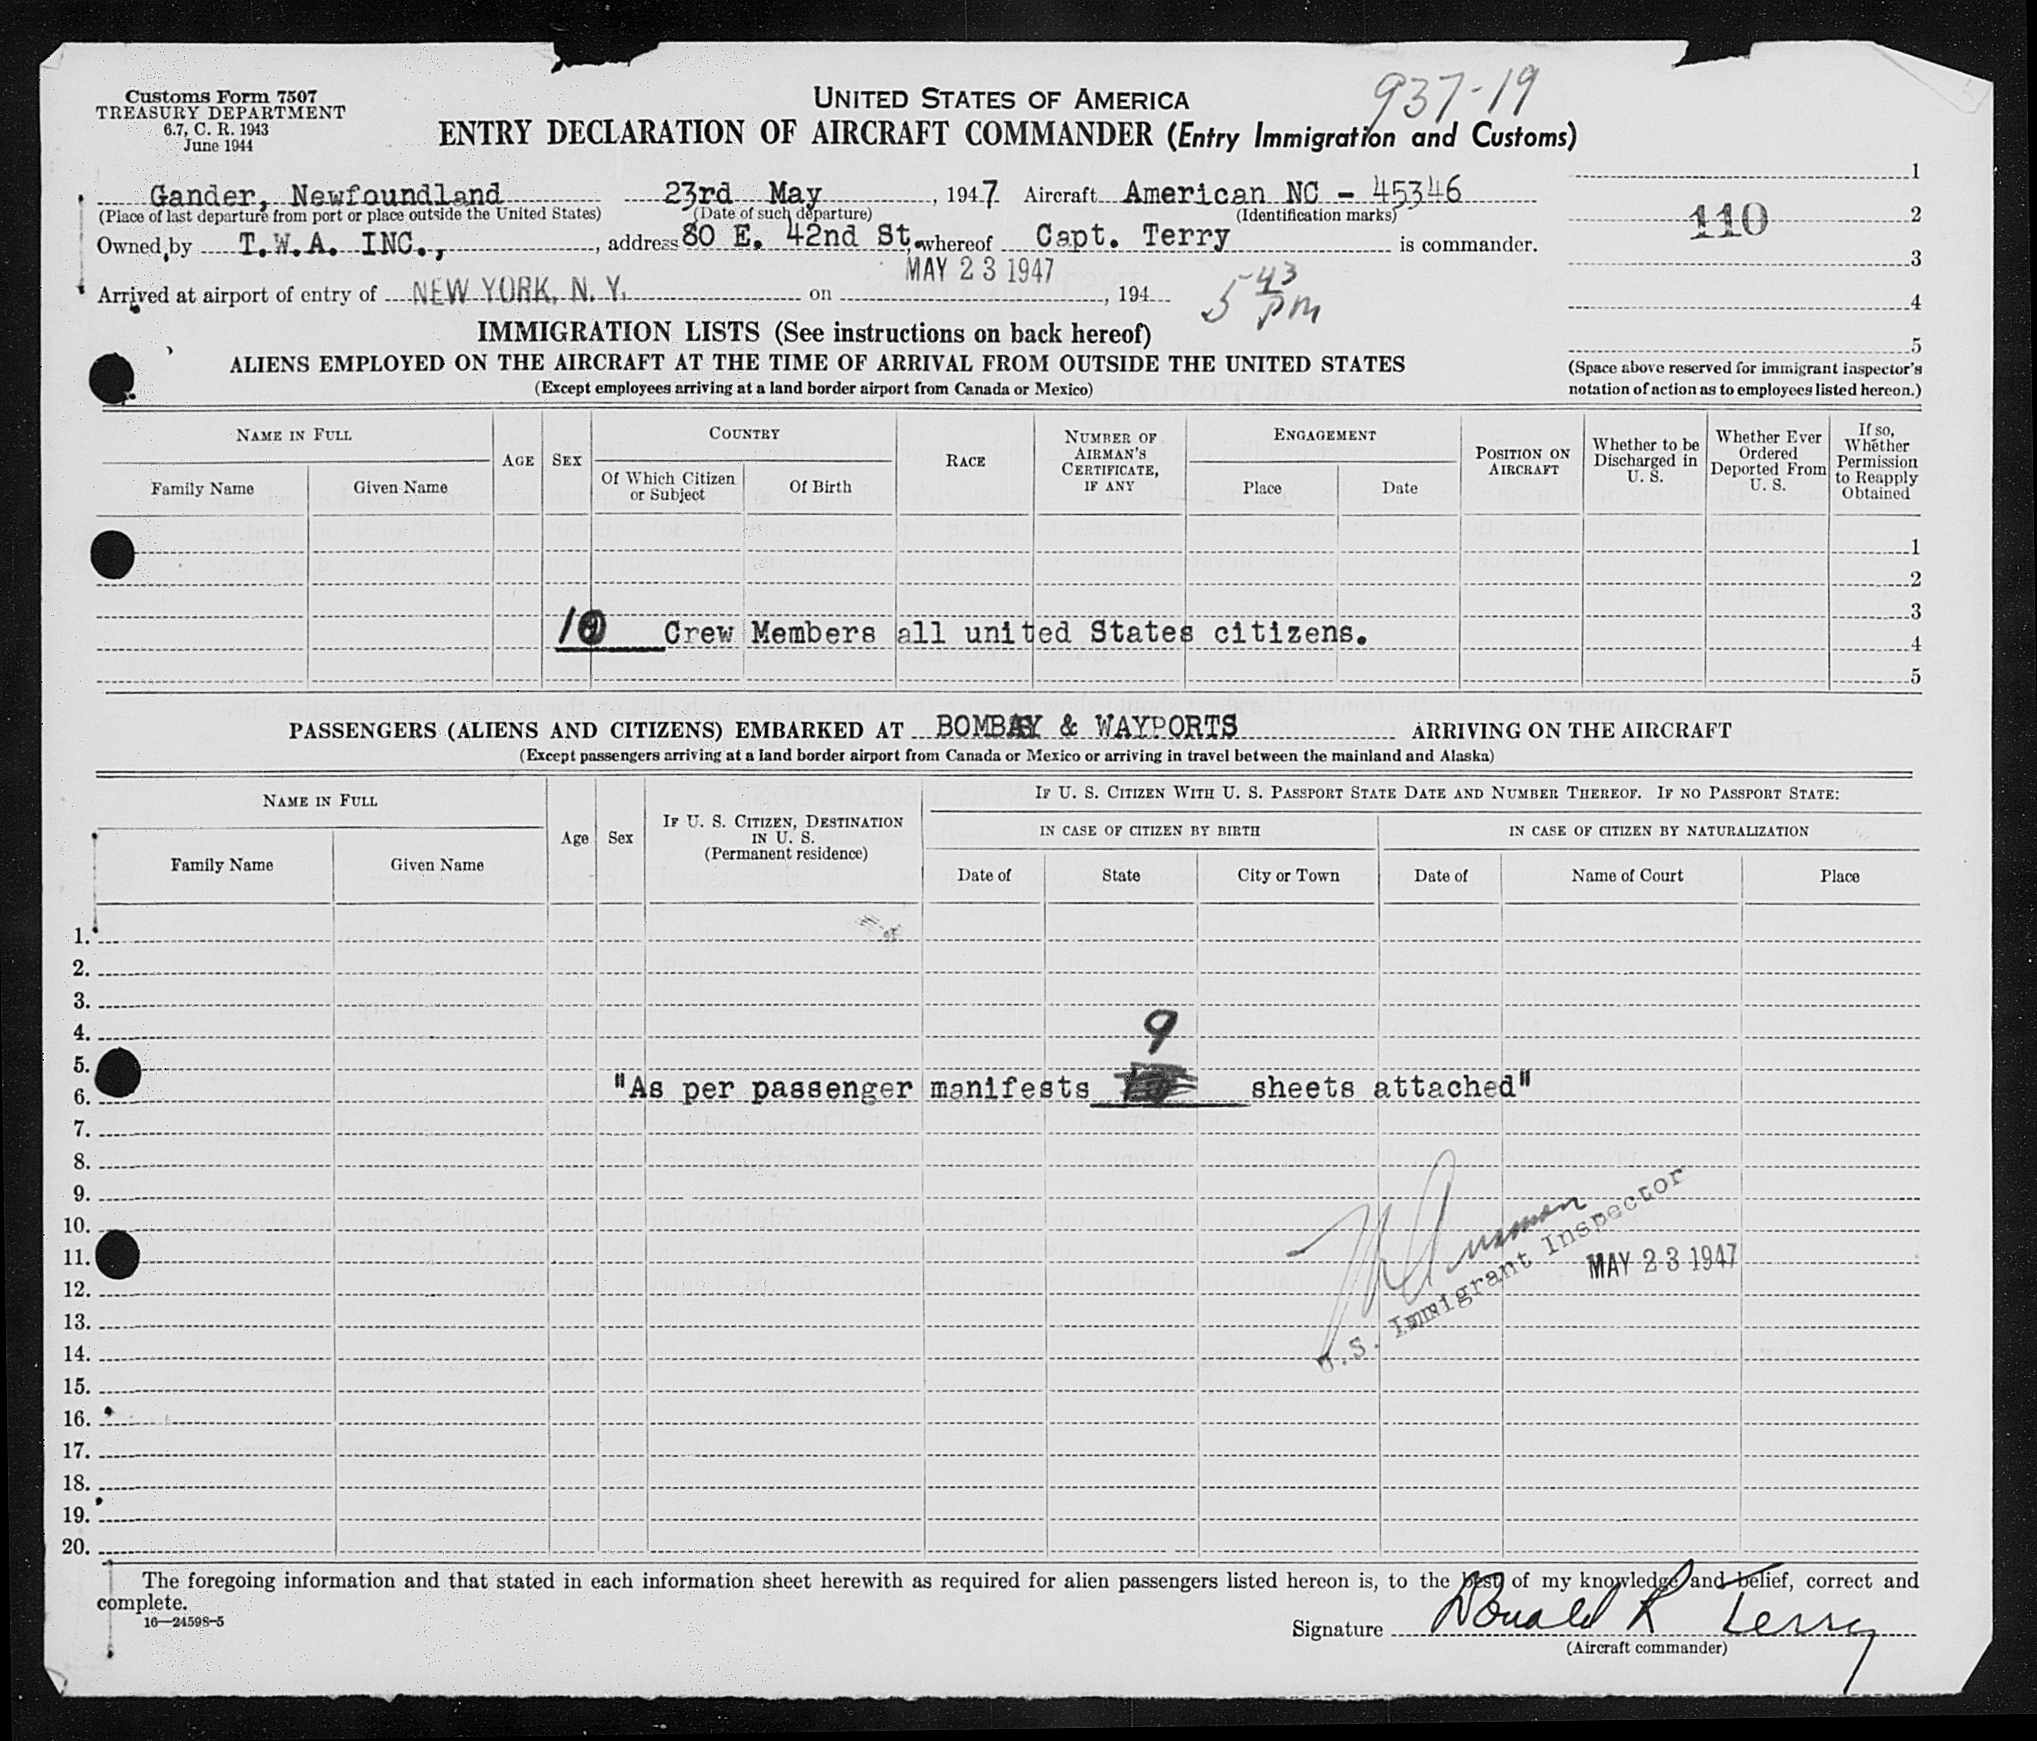 937-19
Customs Form 7507
TREASURY DEPARTMENT
6.7, C. R. 1943
June 1944
UNITED STATES OF AMERICA
ENTRY DECLARATION OF AIRCRAFT COMMANDER (Entry Immigration and Customs)
Gander, Newfoundland 23rd May, 1947 Aircraft American NC - 45346
(Place of last departure from port or place outside the United States) (Date of such departure) (Identification marks)
Owned by T.W.A. INC., , address 80 E. 42nd St. whereof Capt. Terry is commander.
MAY 23 1947
Arrived at airport of entry of NEW YORK, N. Y. on , 194 5-43 pm
1
110 2
3
4
5
(Space above reserved for immigrant inspector's
notation of action as to employees listed hereon.)
IMMIGRATION LISTS (See instructions on back hereof)
ALIENS EMPLOYED ON THE AIRCRAFT AT THE TIME OF ARRIVAL FROM OUTSIDE THE UNITED STATES
(Except employees arriving at a land border airport from Canada or Mexico)
NAME IN FULL
Family Name
Given Name
AGE
SEX
COUNTRY
Of Which Citizen
or Subject
Of Birth
RACE
NUMBER OF
AIRMAN'S
CERTIFICATE,
IF ANY
ENGAGEMENT
Place
Date
POSITION ON
AIRCRAFT
Whether to be
Discharged in
U. S.
Whether Ever
Ordered
Deported From
U. S.
If so,
Whether
Permission
to Reapply
Obtained
1
2
3
10 Crew Members all united States citizens.
4
5
PASSENGERS (ALIENS AND CITIZENS) EMBARKED AT BOMBAY & WAYPORTS ARRIVING ON THE AIRCRAFT
(Except passengers arriving at a land border airport from Canada or Mexico or arriving in travel between the mainland and Alaska)
NAME IN FULL
Family Name
Given Name
Age
Sex
IF U. S. CITIZEN, DESTINATION
IN U. S.
(Permanent residence)
IF U. S. CITIZEN WITH U. S. PASSPORT STATE DATE AND NUMBER THEREOF. IF NO PASSPORT STATE:
IN CASE OF CITIZEN BY BIRTH
IN CASE OF CITIZEN BY NATURALIZATION
Date of
State
City or Town
Date of
Name of Court
Place
1.
2.
3.
4.
9
5.
6. "As per passenger manifests sheets attached"
7.
8.
9.
10.
11.
U.S. Immigrant Inspector
MAY 23 1947
12.
13.
14.
15.
16.
17.
18.
19.
20.
The foregoing information and that stated in each information sheet herewith as required for alien passengers listed hereon is, to the best of my knowledge and belief, correct and
complete.
16—24598-5
Signature Donald R Terry
(Aircraft commander)